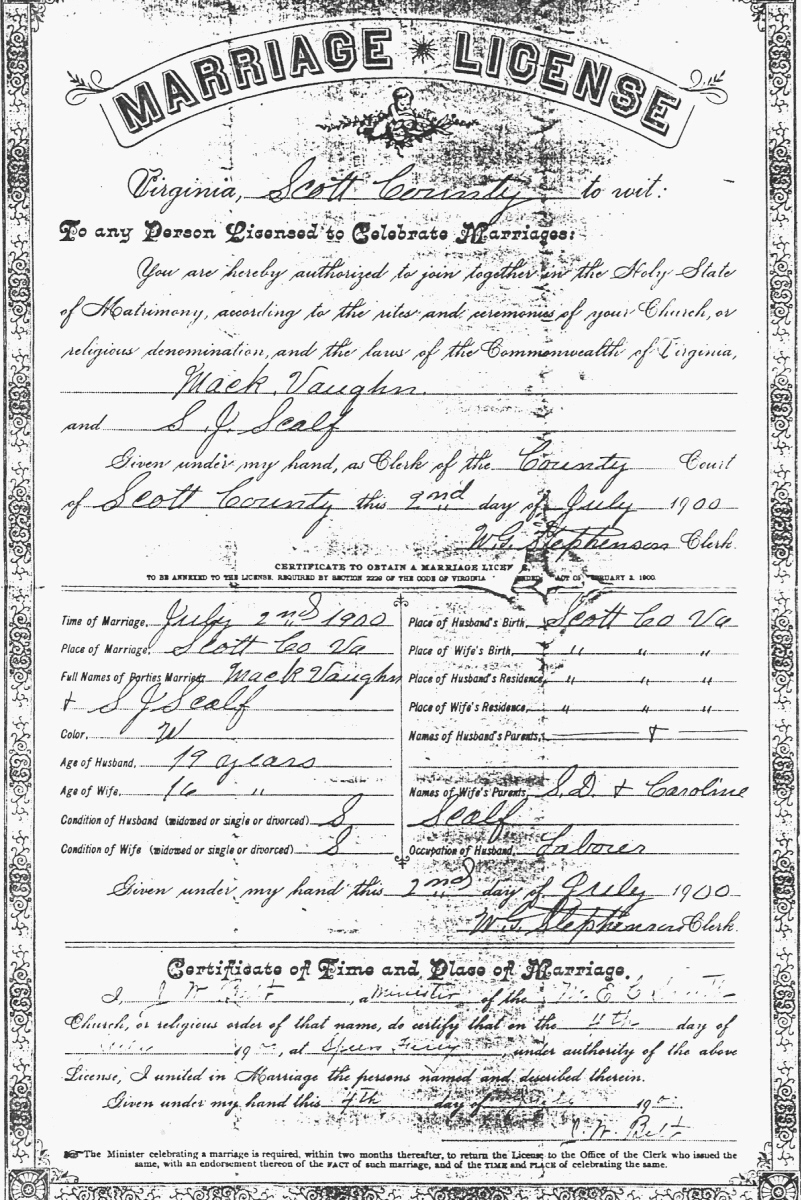 MARRIAGE LICENSE
Virginia, Scott County to wit:
To any Person Licensed to Celebrate Marriages:
You are hereby authorized to join together in the Holy State
of Matrimony, according to the rites and ceremonies of your Church, or
religious denomination, and the laws of the Commonwealth of Virginia,
Mack Vaughn.
and S. J. Scalf
Given under my hand, as Clerk of the County Court
of Scott County this 2nd day of July 1900
W.G. Stephenson Clerk.
CERTIFICATE TO OBTAIN A MARRIAGE
TO BE ANNEXED TO THE LICENSE. REQUIRED BY SECTION 2229 OF THE CODE OF VIRGINIA ACT OF 2, 1900.
Time of Marriage, July 2nd 1900
Place of Marriage, Scott Co Va
Full Names of Parties Married, Mack Vaughn
+ S J Scalf
Color, W
Age of Husband, 19 years
Age of Wife, 16 "
Condition of Husband (widowed or single or divorced) S
Condition of Wife (widowed or single or divorced) S
Place of Husband's Birth, Scott Co Va
Place of Wife's Birth, " " "
Place of Husband's Residence, " " "
Place of Wife's Residence, " " "
Names of Husband's Parents,
Names of Wife's Parents, S.D. + Caroline
Scalf
Occupation of Husband, Laborer
Given under my hand this 2nd day of July 1900
W.G. Stephenson Clerk.
Certificate of Time and Place of Marriage.
I, J W Belt, a Minister of the M. E. C.
Church, or religious order of that name, do certify that on the 4th day of
19, at, under authority of the above
License, I united in Marriage the persons named and described therein.
Given under my hand this 4th day of 190
J. W. Belt
The Minister celebrating a marriage is required, within two months thereafter, to return the License to the Office of the Clerk who issued the
same, with an endorsement thereon of the FACT of such marriage, and of the TIME and PLACE of celebrating the same.